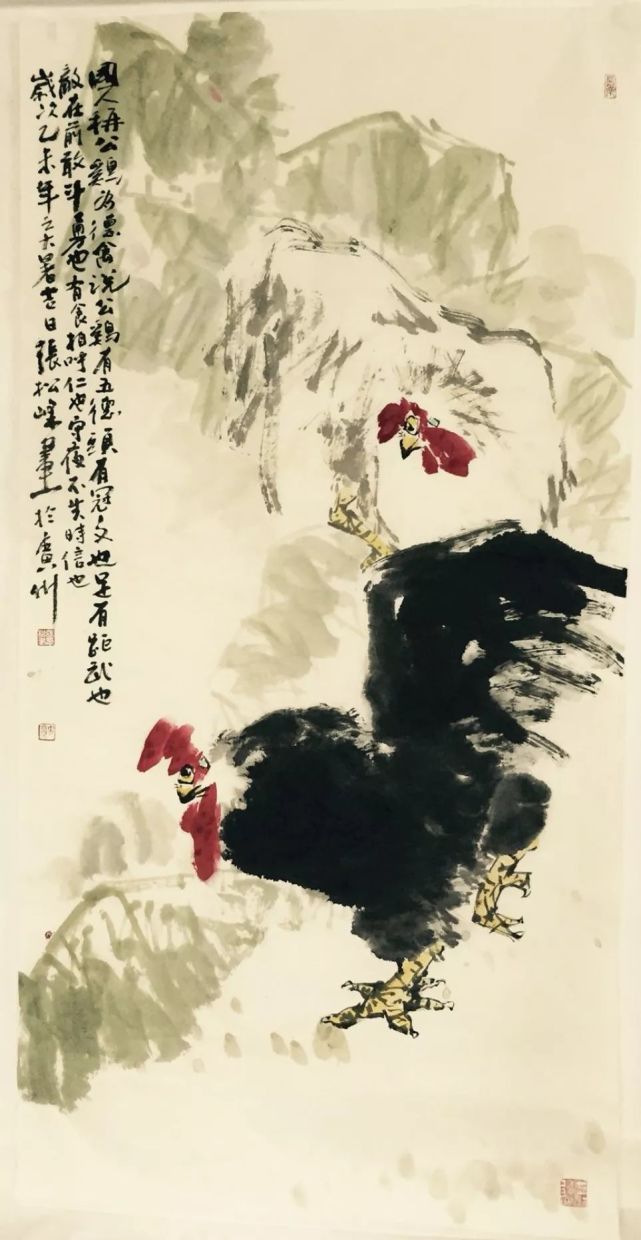 国人称公鸡为德禽说公鸡有五德头有冠文也足有距武也
敵在前敢斗勇也有食相呼仁也守夜不失時信也
歲次乙未年之大暑吉日張松峰畫於廣州